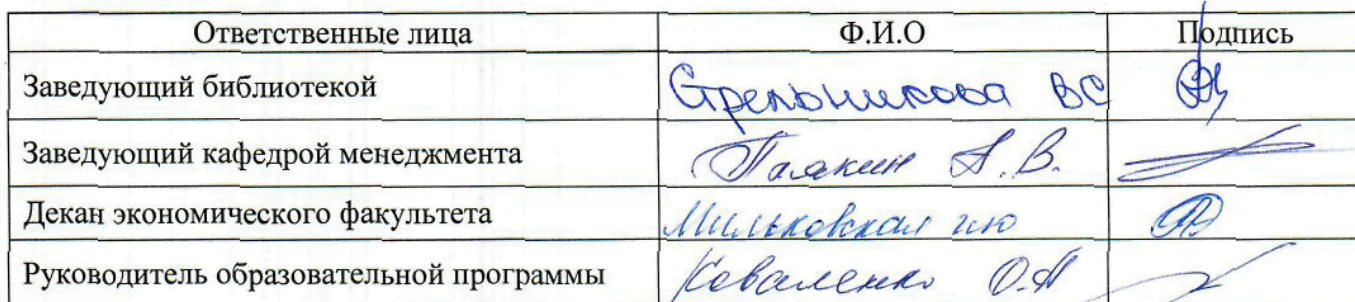 Ответственные лица Ф.И.О Подпись
Заведующий библиотекой Стрельникова ВС
Заведующий кафедрой менеджмента А.В.
Декан экономического факультета Мильковская
Руководитель образовательной программы Коваленко О.А